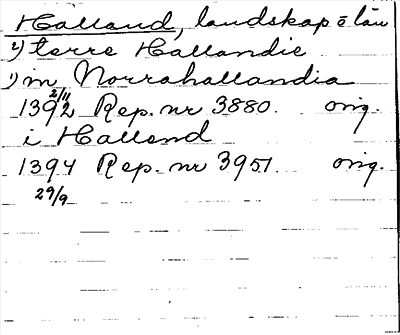 Halland, landskap o län
2) terre Hallandie
1) in Norrahallandia
2/11
1392 Rep. nr 3880. orig.
i Halland
1394 Rep. nr 3951 orig.
29/9